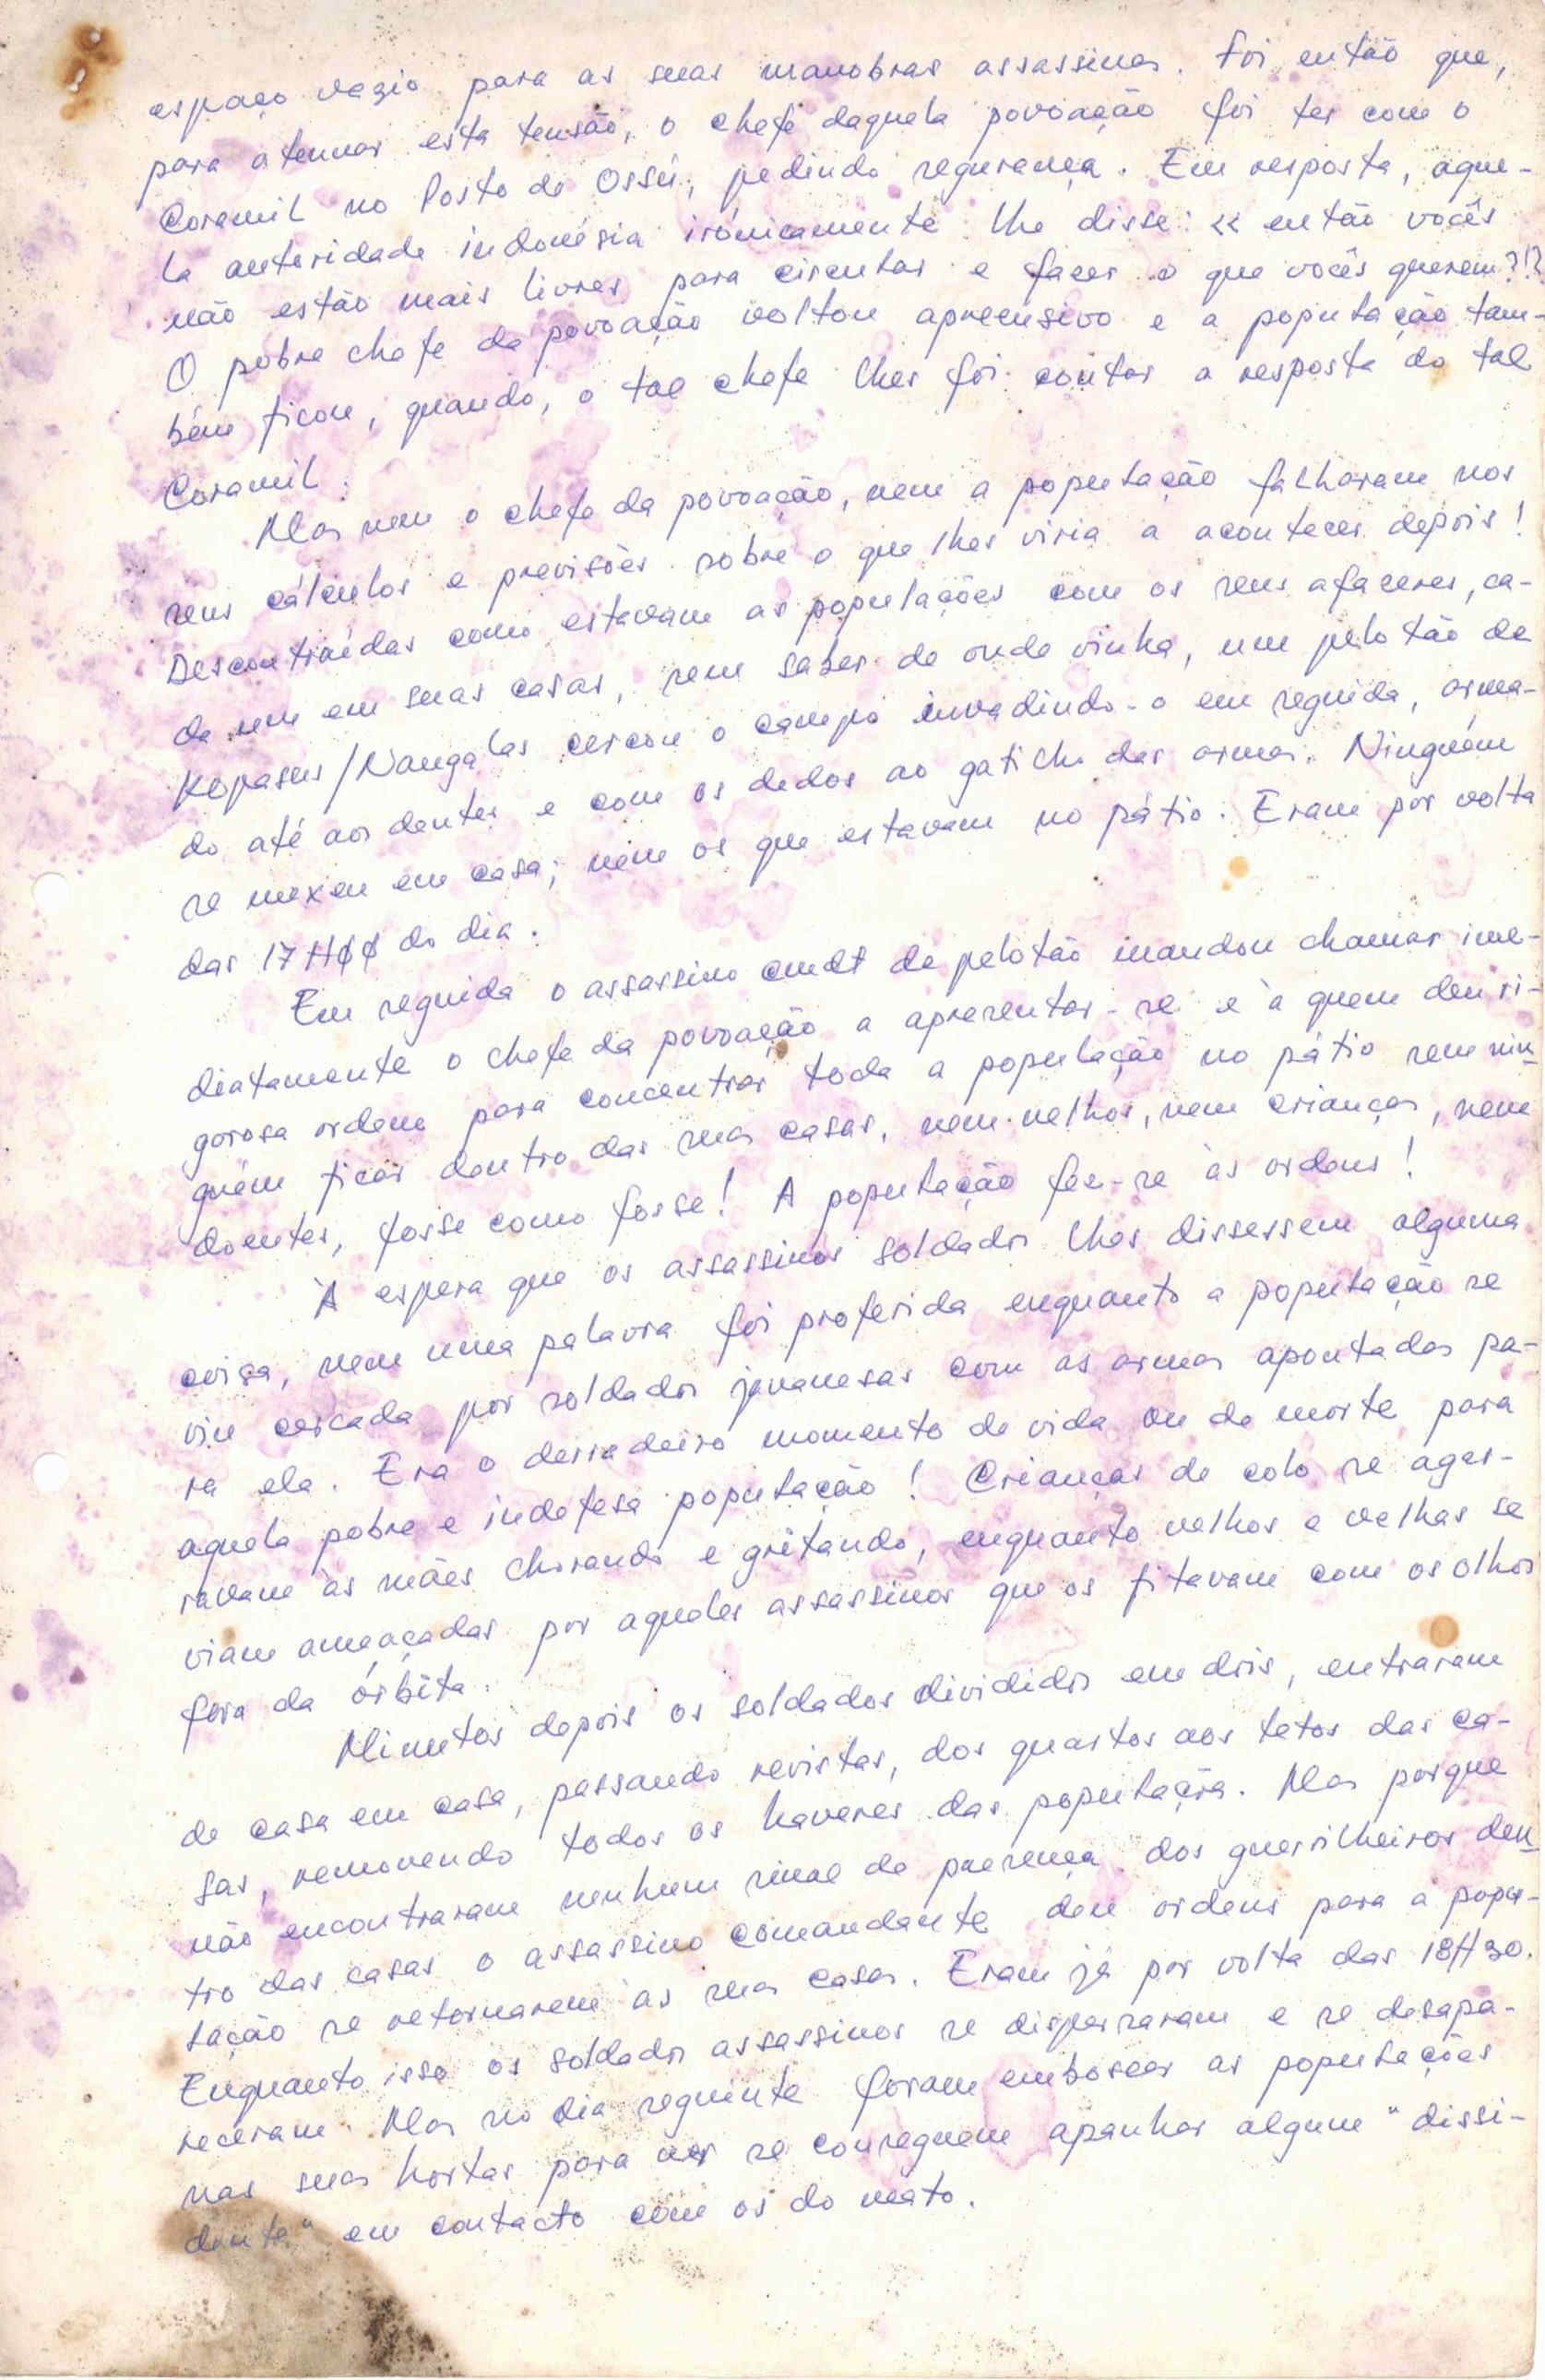 espaço vazio para as suas manobras assassinas. Foi então que,
para atenuar esta tensão, o chefe daquela povoação foi ter com o
Coramil no Posto de Ossú, pedindo segurança. Em resposta, aque-
la autoridade indonésia irónicamente lhe disse: << então vocês
não estão mais livres para circular e fazer o que vocês querem?!?
O pobre chefe da povoação voltou apreensivo e a população tam-
bém ficou, quando, o tal chefe lhes foi contar a resposta do tal
Coramil.
Mas nem o chefe da povoação, nem a população falharam nos
seus cálculos e previsões sobre o que lhes viria a acontecer depois!
Descontraídas como estavam as populações com os seus afazeres, ca-
da um em suas casas, sem saber de onde vinha, um pelotão de
Kopasus/Nangalas cercou o campo invadindo-o em seguida, arma-
do até aos dentes e com os dedos ao gatilho das armas. Ninguém
se mexeu em casa; nem os que estavam no pátio. Eram por volta
das 17H00 do dia.
Em seguida o assassino cmdt de pelotão mandou chamar ime-
diatamente o chefe da povoação a apresentar-se e à quem deu ri-
gorosa ordem para concentrar toda a população no pátio sem nin-
guém ficar dentro das suas casas, nem velhos, nem crianças, nem
doentes, fosse como fosse! A população fez-se às ordens!
À espera que os assassinos soldados lhes dissessem alguma
coisa, nem uma palavra foi proferida enquanto a população se
viu cercada por soldados javanesas com as armas apontadas pa-
ra ela. Era o derradeiro momento de vida ou de morte para
aquela pobre e indefesa população! Crianças de colo se agar-
ravam às mães chorando e gritando, enquanto velhos e velhas se
viam ameaçadas por aqueles assassinos que os fitavam com os olhos
fora da órbita.
Minutos depois os soldados divididos em dois, entraram
de casa em casa, passando revistas, dos quartos aos tetos das ca-
sas, removendo todos os haveres das população. Mas porque
não encontraram nenhum sinal de presença dos guerrilheiros den-
tro das casas o assassino comandante deu ordens para a popu-
lação se retornarem às suas casas. Eram já por volta das 18H30.
Enquanto isso os soldados assassinos se dispersaram e se desapa-
receram. Mas no dia seguinte foram emboscar as populações
nas suas hortas para ver se conseguem apanhar algum "dissi-
dente" em contacto com os do mato.